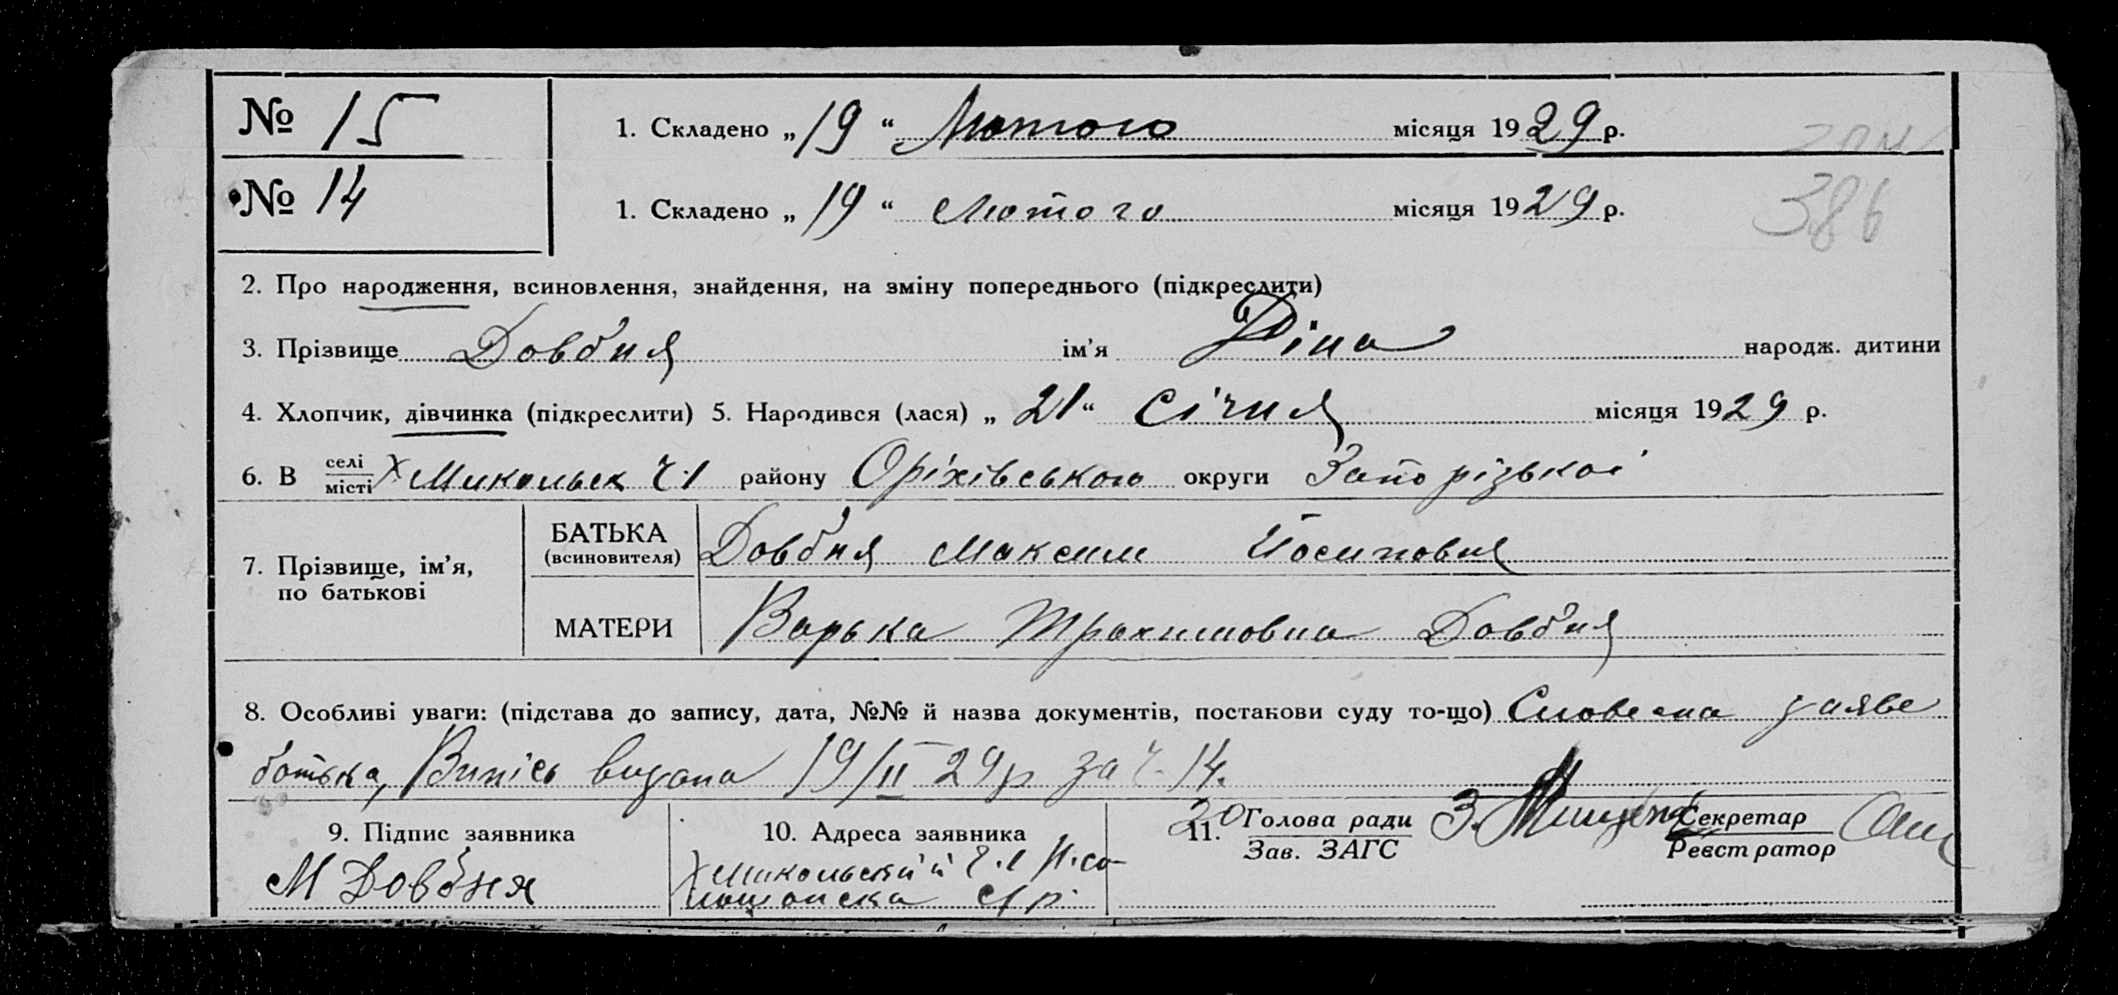 № 15
1. Складено „ 19 “ Лютого місяця 1929 р.
№ 14
1. Складено „ 19 “ Лютого місяця 1929 р.
386
2. Про народження, всиновлення, знайдення, на зміну попереднього (підкреслити)
3. Прізвище Довбня ім’я Діна народж. дитини
4. Хлопчик, дівчинка (підкреслити) 5. Народився (лася) „ 21 “ Січня місяця 1929 р.
6. В селі місті х Микольск Ч.1 району Оріхівського округи Запорізької
7. Прізвище, ім’я, по батькові
БАТЬКА (всиновителя) Довбня Максим Йосипович
МАТЕРИ Варька Трахимовна Довбня
8. Особливі уваги: (підстава до запису, дата, №№ й назва документів, постанови суду то-що) Словесна заява
батька, Випісь видана 19/II 29р за ч. 14.
9. Підпис заявника
М Довбня
10. Адреса заявника
х Микольский Ч.1
с/р.
11. Голова ради
Зав. ЗАГС
Секретар
Реєстратор